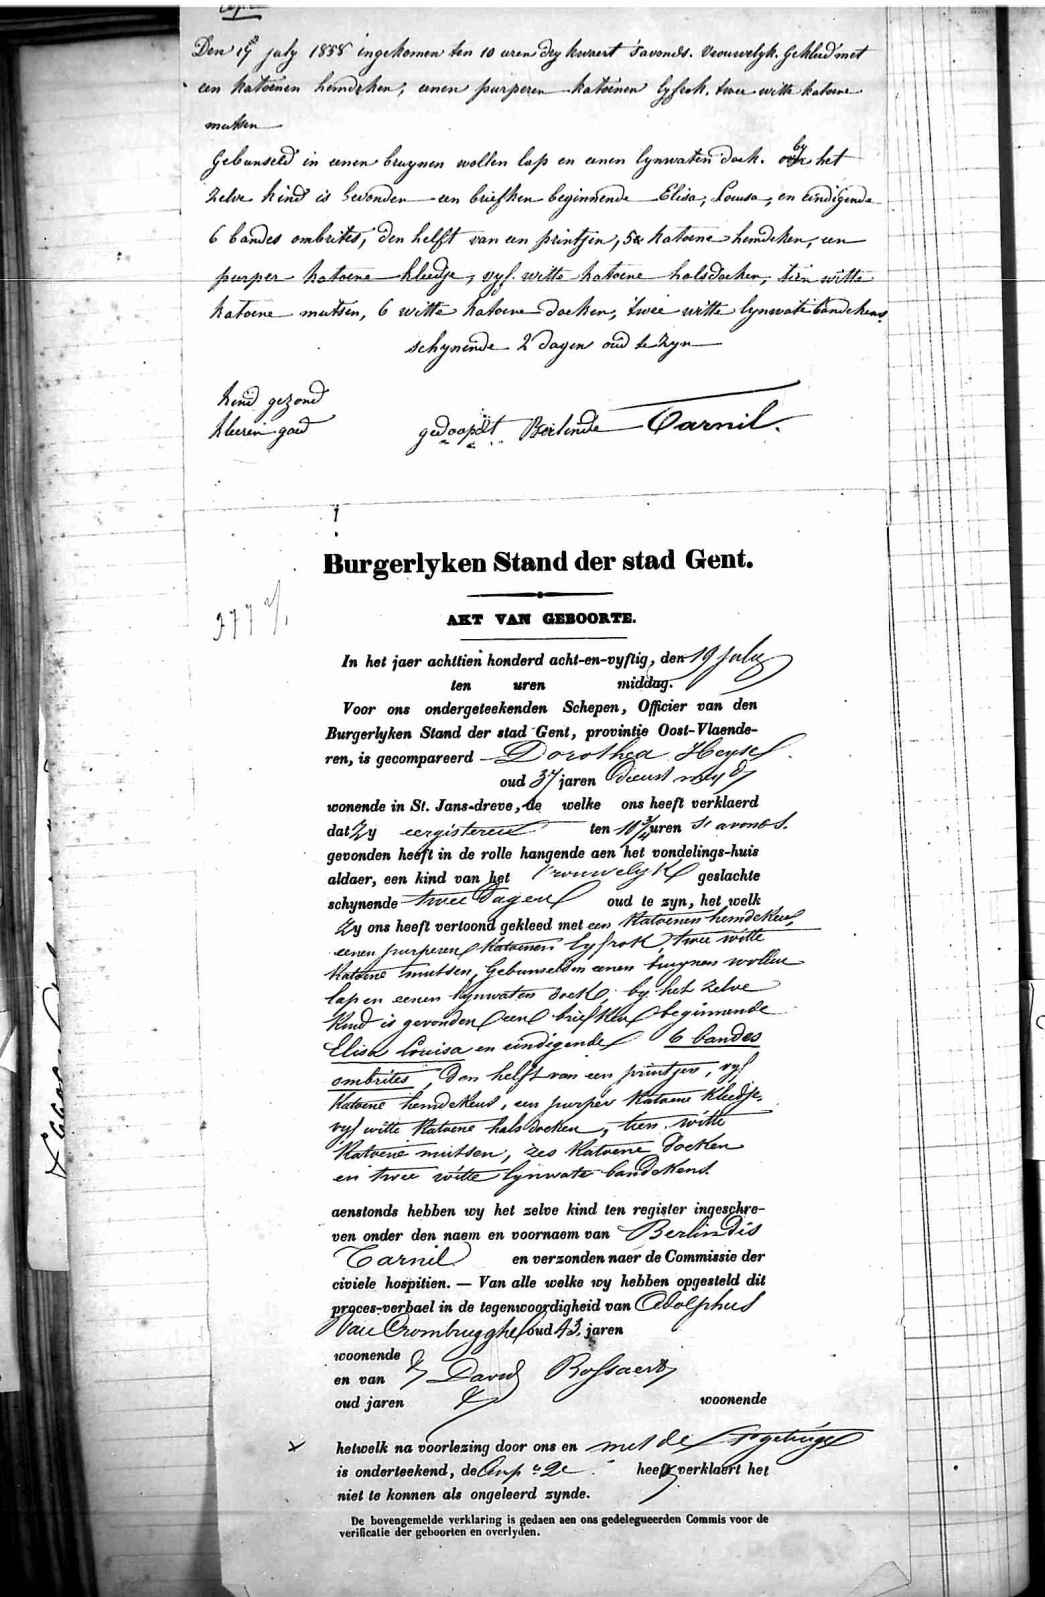 Den 19 july 1858 ingekomen ten 10 uren dry kwaert s'avonds. Vrouwelyk. Gekleed met
een katoenen hemdeken, eenen purperen katoenen lyfrok, twee witte katoene
mutsen
Gebunseld in eenen bruynen wollen lap en eenen lynwaten doek. by het
zelve kind is Gevonden een briefken beginnende Elisa, Louisa, en eindigende
6 bandes ombrites, den helft van een printjen, 5 katoene hemdeken, een
purper katoene kleedje, vyf witte katoene halsdoeken, tien witte
katoene mutsen, 6 witte katoene doeken, twee witte lynwate bandekens
schynende 2 dagen oud te zyn
Kind gezond
kleeren goed
gedoopt Berlinde Carnil.
Burgerlyken Stand der stad Gent.
AKT VAN GEBOORTE.
377
In het jaer achttien honderd acht-en-vyftig, den 19 july
ten uren middag.
Voor ons ondergeteekenden Schepen, Officier van den
Burgerlyken Stand der stad Gent, provintie Oost-Vlaende-
ren, is gecompareerd Dorothea Heyse
oud 37 jaren dienst meyd
wonende in St. Jans-dreve, de welke ons heeft verklaerd
dat Zy eergisteren ten 10 3/4 uren s'avonds.
gevonden heeft in de rolle hangende aen het vondelings-huis
aldaer, een kind van het vrouwelyk geslachte
schynende twee dagen oud te zyn, het welk
Zy ons heeft vertoond gekleed met een katoenen hemdeken,
eenen purperen katoenen lyfrok, twee witte
katoene mutsen, Gebunseld in eenen bruynen wollen
lap en eenen lynwaten doek, by het zelve
kind is gevonden een briefken beginnende
Elisa Louisa en eindigende 6 bandes
ombrites, Den helft van een printjen, vyf
katoene hemdekens, een purper katoene kleedje,
vyf witte katoene halsdoeken, tien witte
katoene mutsen, zes katoene doeken
en twee witte lynwate bandekens
aenstonds hebben wy het zelve kind ten register ingeschre-
ven onder den naem en voornaem van Berlindis
Carnil en verzonden naer de Commissie der
civiele hospitien. — Van alle welke wy hebben opgesteld dit
proces-verbael in de tegenwoordigheid van Adolphus
Van Crombrugghe oud 43 jaren
woonende
en van David Bossaert
oud jaren woonende
hetwelk na voorlezing door ons en met de getuige
is onderteekend, de Comp 2e heeft verklaert het
niet te konnen als ongeleerd zynde.
De bovengemelde verklaring is gedaen aen ons gedelegueerden Commis voor de
verificatie der geboorten en overlyden.